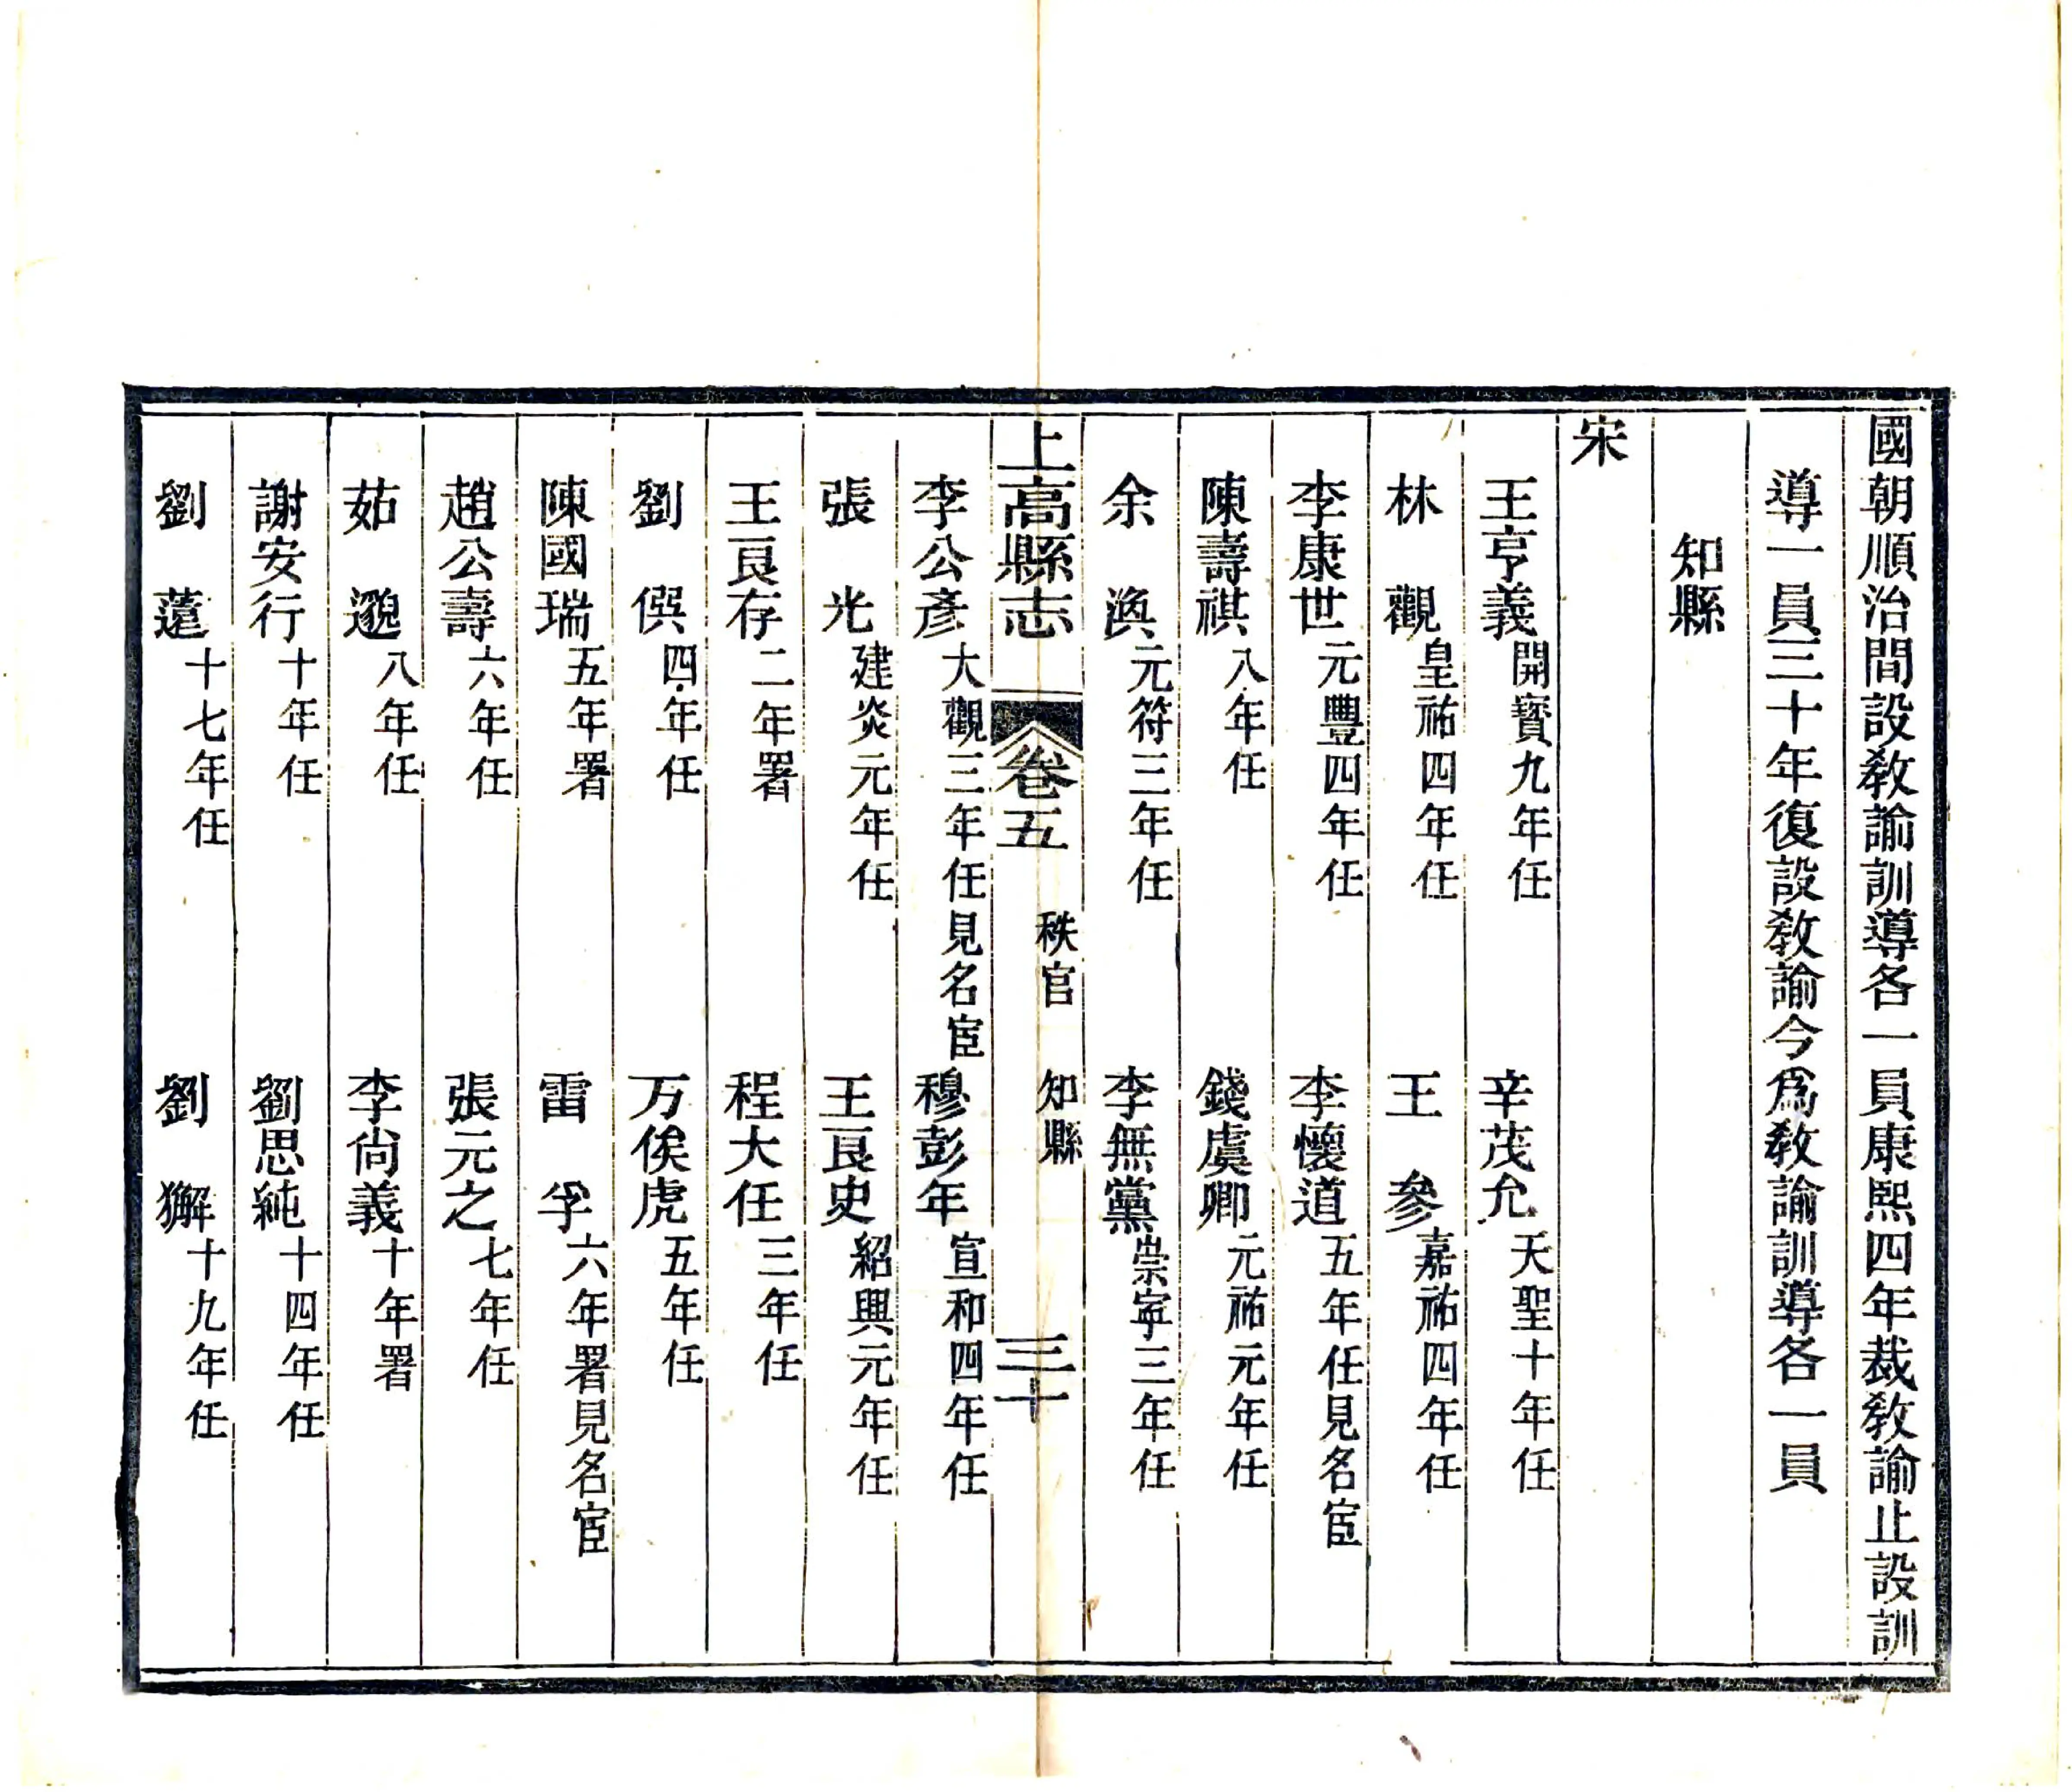 國朝順治間設敎諭訓導各一員康熙四年裁敎諭止設訓
導一員三十年復設敎諭今爲敎諭訓導各一員
知縣
宋
王亨義開寶九年任 辛茂允天聖十年任
林觀皇祐四年任 王參嘉祐四年任
李康世元豐四年任 李懷道五年任見名宦
陳壽祺八年任 錢虞卿元祐元年任
余渙元符三年任 李無黨崇寧三年任
上高縣志 卷五 秩官 知縣 三十
李公彥大觀三年任見名宦 穆彭年宣和四年任
張光建炎元年任 王良史紹興元年任
王良存二年署 程大任三年任
劉僎四年任 万俟虎五年任
陳國瑞五年署 雷孚六年署見名宦
趙公壽六年任 張元之七年任
茹邈八年任 李尙義十年署
謝安行十年任 劉思純十四年任
劉薳十七年任 劉獬十九年任